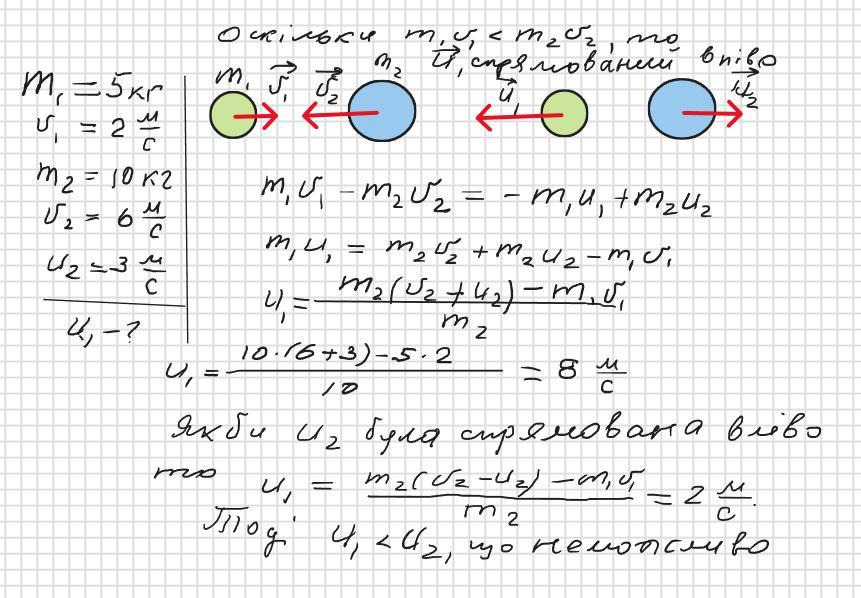 Оскільки m₁v₁ < m₂v₂, то
u⃗₁ спрямований вліво
m₁ v⃗₁ v⃗₂ m₂ u⃗₁ u⃗₂
m₁ = 5 кг
v₁ = 2 м/с
m₂ = 10 кг
v₂ = 6 м/с
u₂ = 3 м/с
u₁ - ?
m₁v₁ - m₂v₂ = - m₁u₁ + m₂u₂
m₁u₁ = m₂v₂ + m₂u₂ - m₁v₁
u₁ = (m₂(v₂ + u₂) - m₁v₁) / m₂
u₁ = (10·(6+3) - 5·2) / 10 = 8 м/с
Якби u₂ була спрямована вліво
то u₁ = (m₂(v₂ - u₂) - m₁v₁) / m₂ = 2 м/с.
Тоді u₁ < u₂, що неможливо